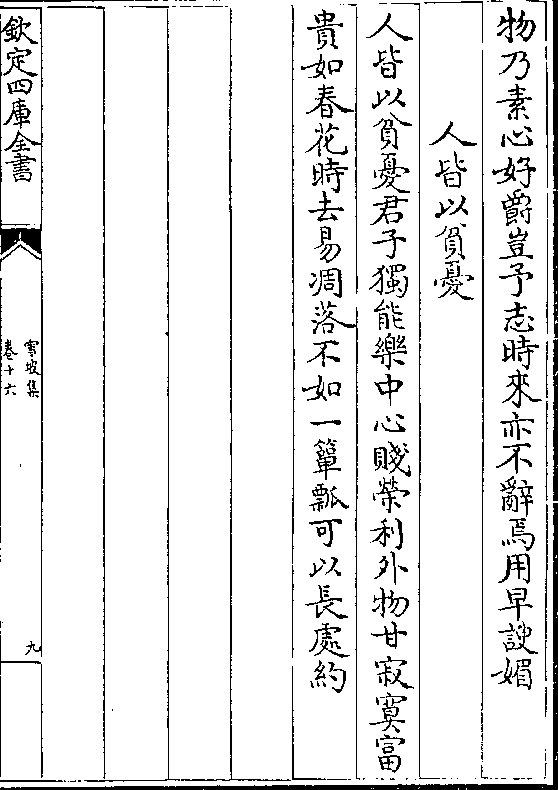 物乃素心好爵豈予志時來亦不辭焉用早諛媚
人皆以貧憂
人皆以貧憂君子獨能樂中心賤榮利外物甘寂寞富
貴如春花時去易凋落不如一簞瓢可以長處約
欽定四庫全書
雪坡集
卷十六
九